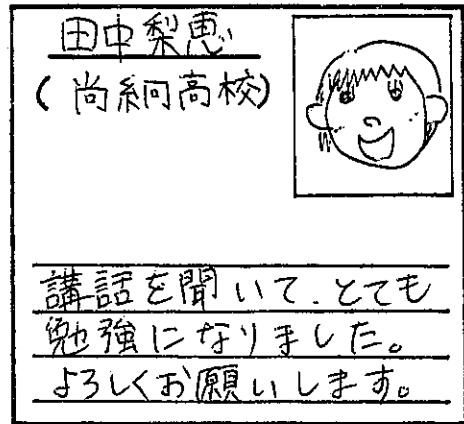 田中梨恵
(尚絅高校)
講話を聞いて、とても
勉強になりました。
よろしくお願いします。